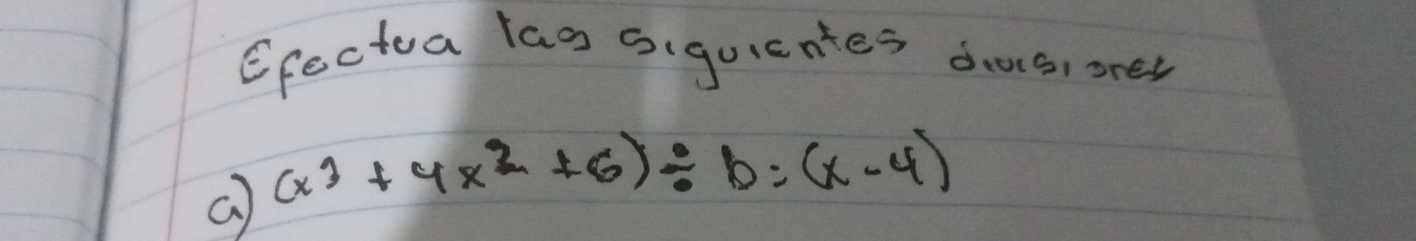 Efectua las siguientes divisiones
a) (x³ + 4x² + 6) ÷ b = (x - 4)